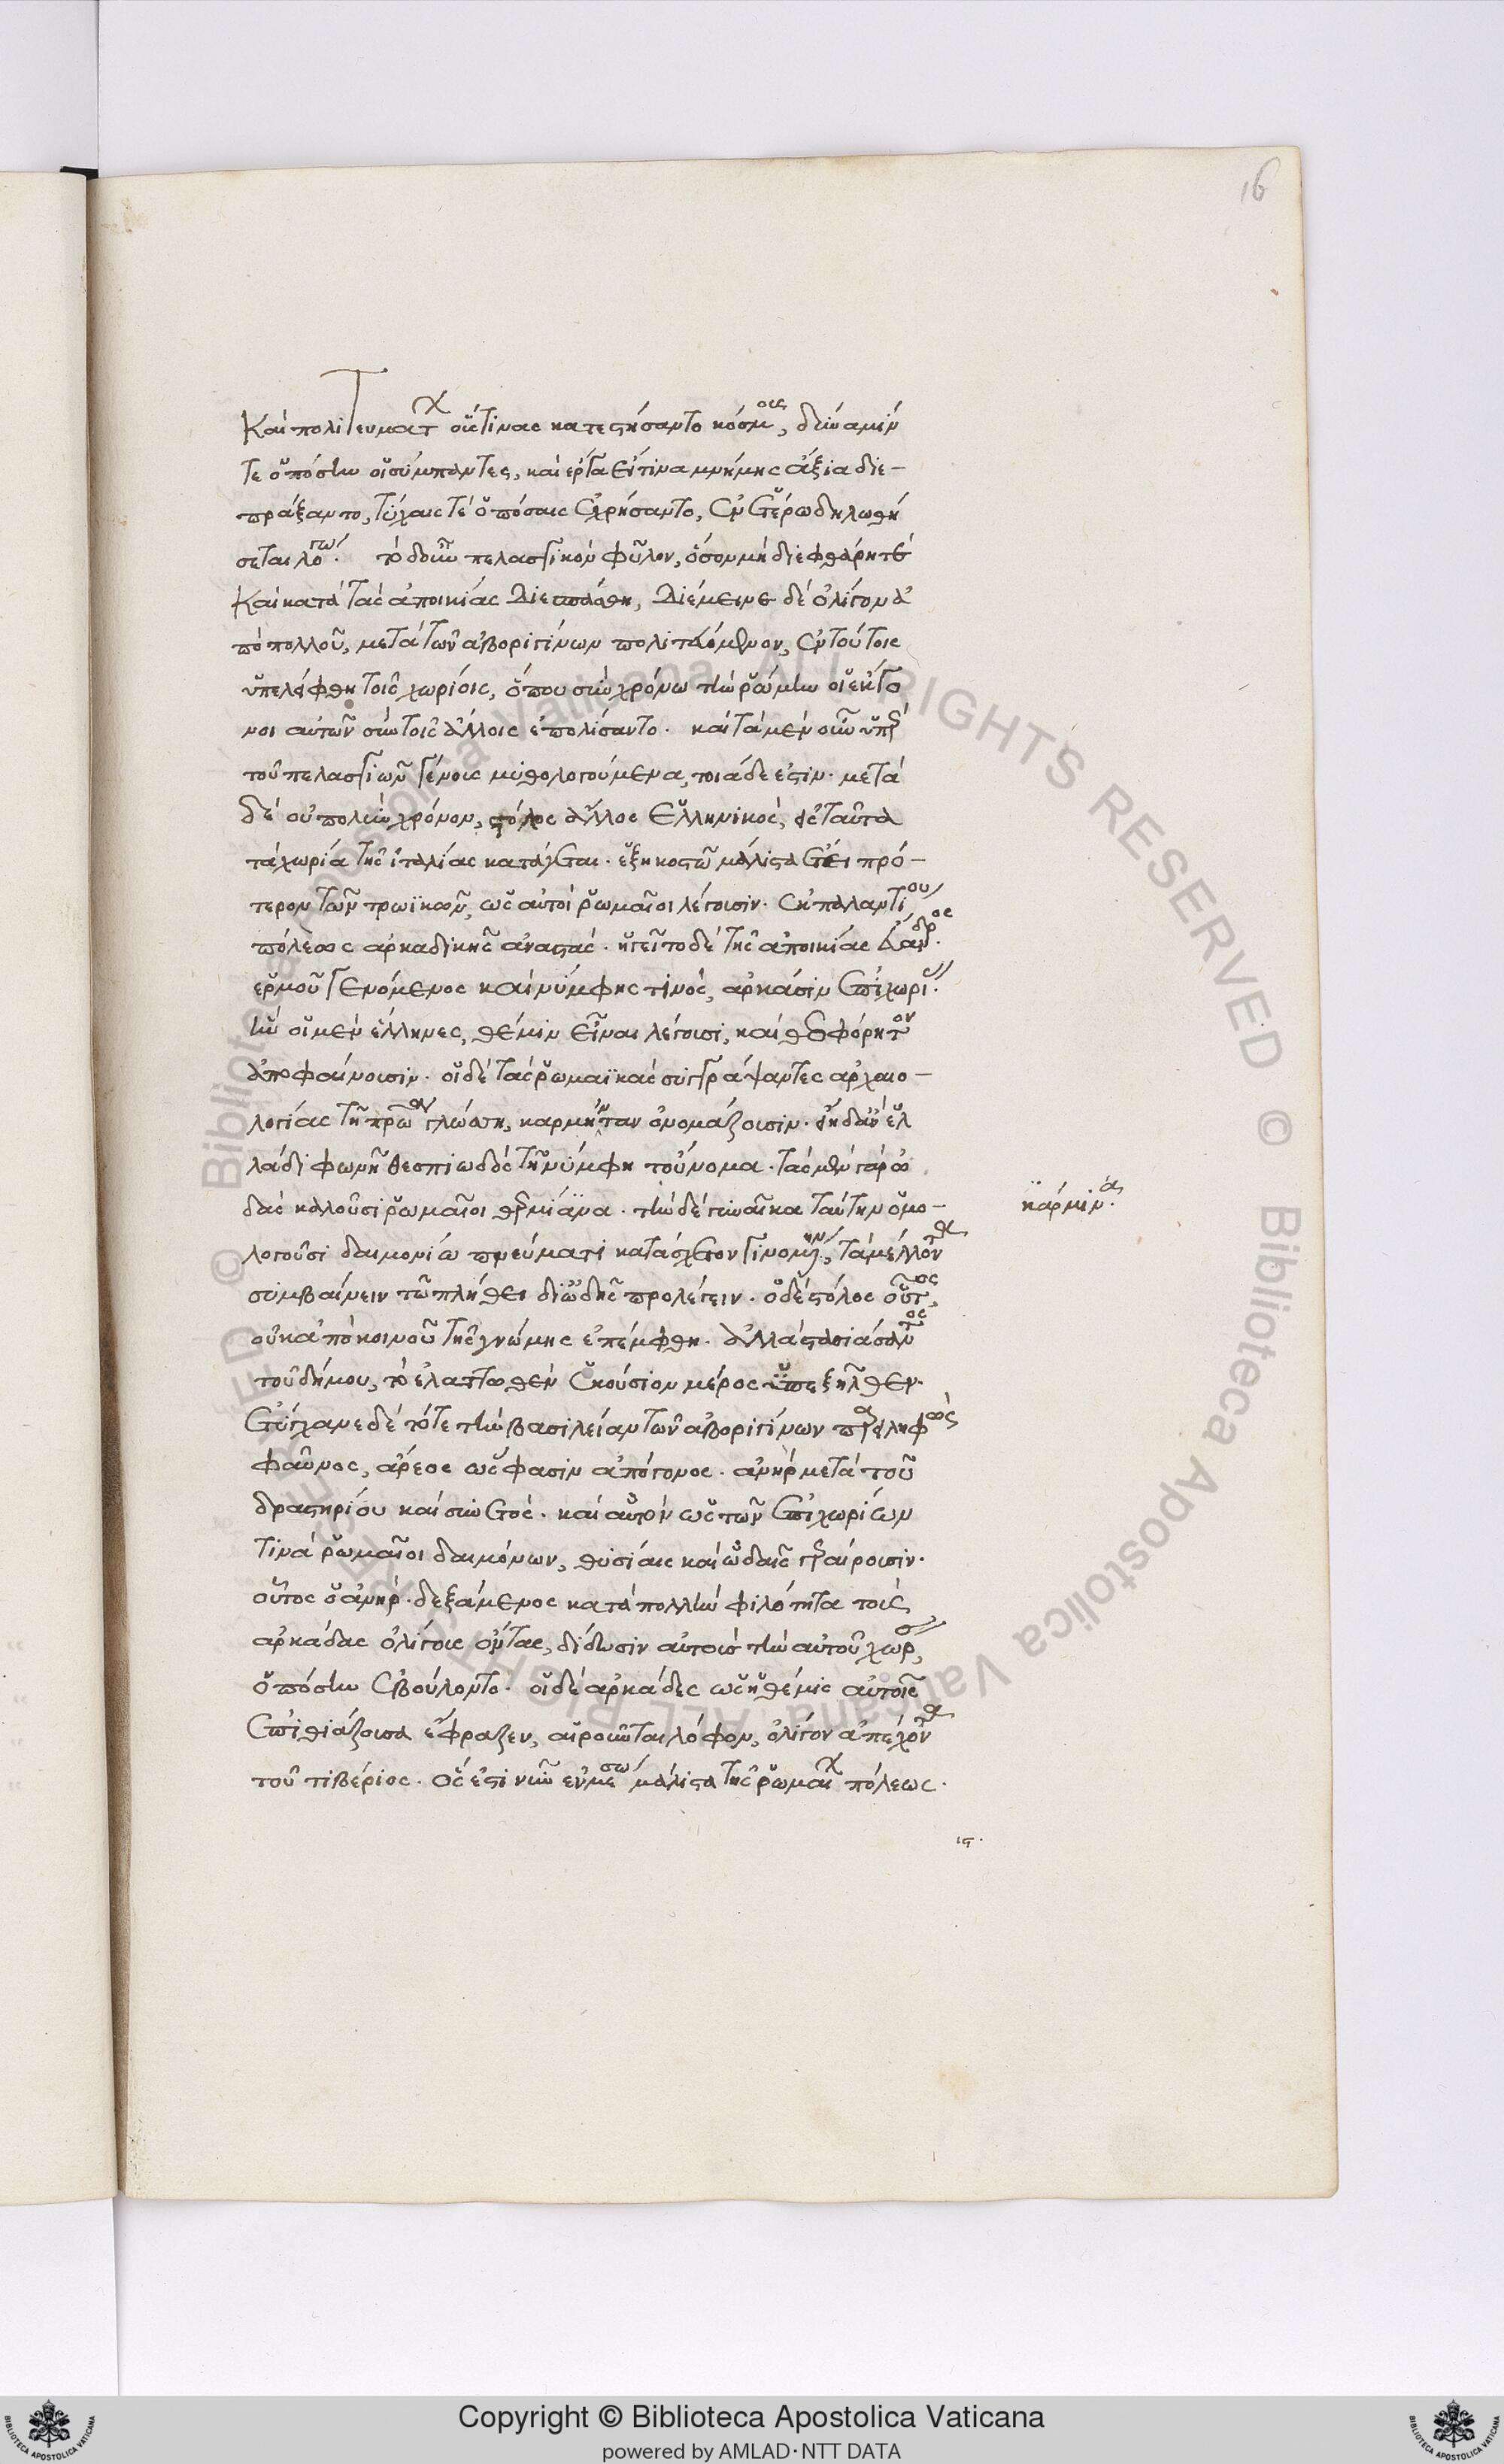 16
Καὶ πολιτευμάτων οὕς τινας κατεστήσαντο κόσμους, δύναμίν
τε ὁπόσην οἱ σύμπαντες, καὶ ἔργα εἴ τινα μνήμης ἄξια διε-
πράξαντο, τύχαις τὲ ὁπόσαις ἐχρήσαντο, ἐν ἑτέρω δηλωθή
σεται λόγω. τὸ δ' οὖν πελασγικὸν φῦλον, ὅσον μὴ διεφθάρη τὲ
καὶ κατὰ τὰς ἀποικίας διεσπάσθη, διέμεινε δὲ ὀλίγον ἀ
πὸ πολλοῦ, μετὰ τῶν ἀβοριγίνων πολιτευόμενον, ἐν τούτοις
ὑπελείφθη τοῖς χωρίοις, ὅπου σὺν χρόνω τὴν ῥώμην οἱ ἔκγο
νοι αὐτῶν σὺν τοῖς ἄλλοις ἐπολίσαντο. καὶ τὰ μὲν οὖν ὑπὲρ
τοῦ πελασγῶν γένους μυθολογούμενα, τοιάδε ἐστίν. μετὰ
δὲ οὐ πολὺν χρόνον, στόλος ἄλλος ἑλληνικὸς, εἰς ταῦτα
τὰ χωρία τῆς ἰταλίας κατάγεται. ἑξηκοστῶ μάλιστα ἔτει πρό-
τερον τῶν τρωϊκῶν, ὡς αὐτοὶ ῥωμαῖοι λέγουσιν. ἐκ παλαντίου
πόλεως ἀρκαδικῆς ἀναστάς. ἡγεῖτο δὲ τῆς ἀποικίας εὔανδρος.
ἑρμοῦ γενόμενος καὶ νύμφης τινὸς, ἀρκάσιν ἐπιχωρίας.
ἣν οἱ μὲν ἕλληνες, θέμιν εἶναι λέγουσι, καὶ θεοφόρητον
ἀποφαίνουσιν. οἱ δὲ τὰς ῥωμαϊκὰς συγγράψαντες ἀρχαιο-
λογίας τῆ πατρώω γλώσση, καρμέντην ὀνομάζουσιν. εἴη δ' ἂν ἑλ
λάδι φωνῆ θεσπιωδὸς τῆ νύμφη τοὔνομα. τὰς μὲν γὰρ ὠ
δὰς καλοῦσι ῥωμαῖοι κάρμινα. τὴν δὲ γυναῖκα ταύτην ὁμο-
κάρμινα.
λογοῦσι δαιμονίω πνεύματι κατάσχετον γινομένην, τὰ μέλλοντα
συμβαίνειν τῶ πλήθει δι' ὠδῆς προλέγειν. ὁ δὲ στόλος οὗτος,
οὐκ ἀπὸ κοινοῦ τῆς γνώμης ἐπέμφθη. ἀλλὰ στασιάσαντος
τοῦ δήμου, τὸ ἐλαττωθὲν ἑκούσιον μέρος ὑπεξῆλθεν.
ἐτύγχανε δὲ τότε τὴν βασιλείαν τῶν ἀβοριγίνων παρειληφὼς
φαῦνος, ἄρεος ὥς φασιν ἀπόγονος. ἀνὴρ μετὰ τοῦ
δραστηρίου καὶ συνετός. καὶ αὐτὸν ὡς τῶν ἐπιχωρίων
τινὰ ῥωμαῖοι δαιμόνων, θυσίαις καὶ ὠδαῖς γεραίρουσιν.
οὗτος ὁ ἀνὴρ. δεξάμενος κατὰ πολλὴν φιλότητα τοὺς
ἀρκάδας ὀλίγους ὄντας, δίδωσιν αὐτοῖς τὴν αὐτοῦ χώρας,
ὁπόσην ἐβούλοντο. οἱ δὲ ἀρκάδες ὡς ἡ θέμις αὐτοῖς
ἐπιθιάζουσα ἔφραζεν, αἱροῦνται λόφον, ὀλίγον ἀπέχοντα
τοῦ τιβέριος. ὅς ἐστι νῦν ἐν μέσω μάλιστα τῆς ῥωμαίων πόλεως.
ις.
Copyright © Biblioteca Apostolica Vaticana
powered by AMLAD·NTT DATA